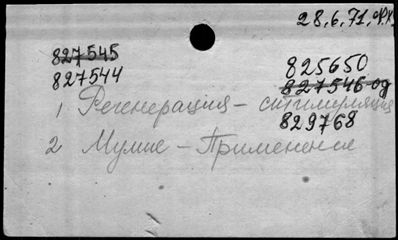 28.6.71.
827545
827544
825650
827546-од
1 Регенерация – стимуляция
829768
2 Мумие – Применение